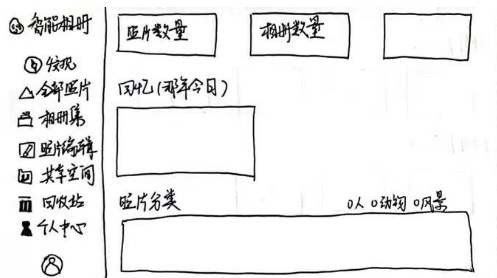 智能相册
发现
全部照片
相册集
照片编辑
共享空间
回收站
个人中心
照片数量
相册数量
回忆(那年今日)
照片分类
人 动物 风景